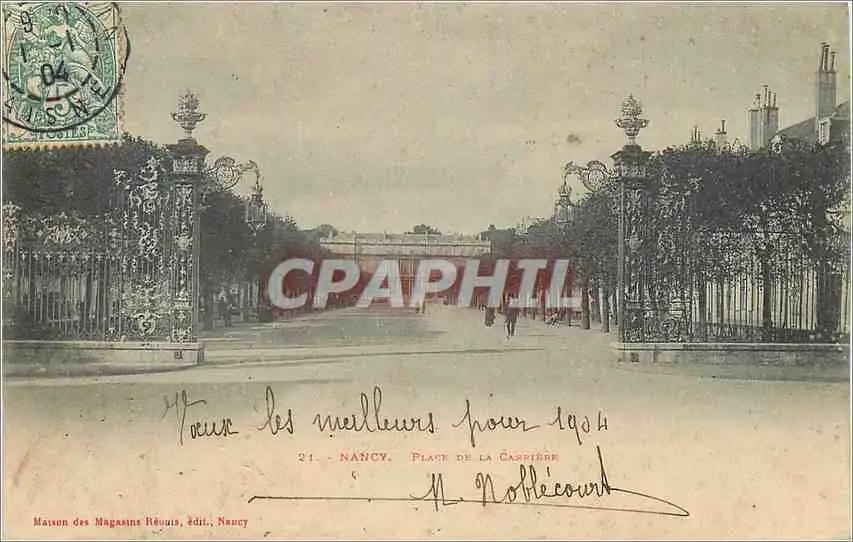 6
1 - 1
04
5
POSTES
CPAPHIL
Vœux les meilleurs pour 1904
21. - NANCY. PLACE DE LA CARRIÈRE
N. Noblécourt
Maison des Magasins Réunis, édit., Nancy